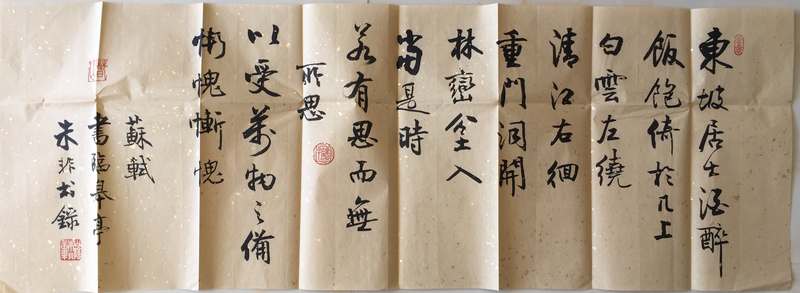 東坡居士酒醉
飯飽倚於几上
白雲左繞
清江右徊
重門洞開
林巒坌入
當是時
若有思而無
所思
以受萬物之備
慚愧慚愧
蘇軾
書臨皋亭
朱非書錄